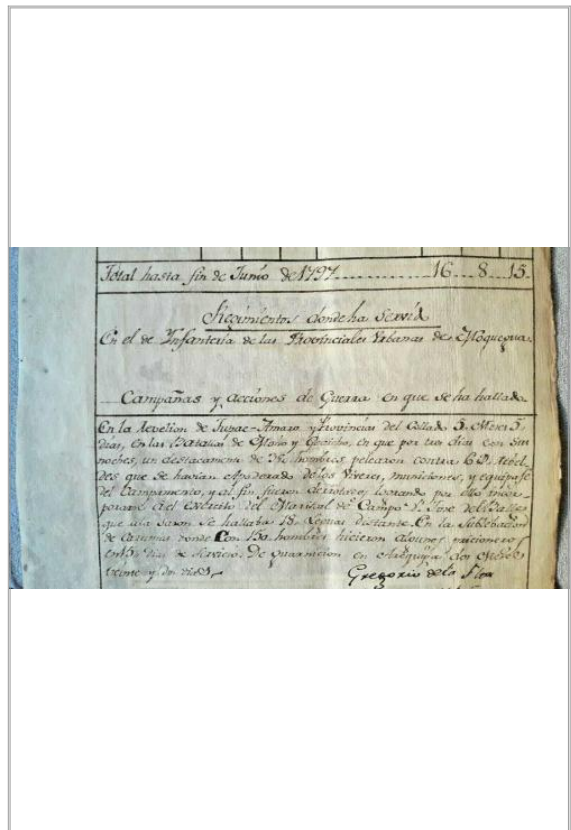 Total hasta fin de Junio de 1797 ............ 16 ... 8 ... 15.
Regimientos donde ha Servido
En el de Infanteria de las Provinciales Urbanas de Moquegua.
Campañas y acciones de Guerra en que se ha hallado.
En la revelion de Tupac-Amaro y Provincias del Collado 5. Meses 5
dias, en las Batallas de y en que por tres dias con sus
noches, un destacamento de hombres pelearon contra 6 D. Rebel-
des que se havian Apoderado de los Viveres, municiones, y equipaje
del Campamento, y al fin fueron derrotados logrando por ello incor-
porarse al exercito del Mariscal de Campo Dn. Jose del Valle,
que se hallaba 18. Leguas distante. En la Sublevacion
de donde Con 150 hombres hicieron algunos pricioneros
de servicio De guarnicion en Arequipa dos Meses
veinte y dos dias,
Gregorio de la Flor